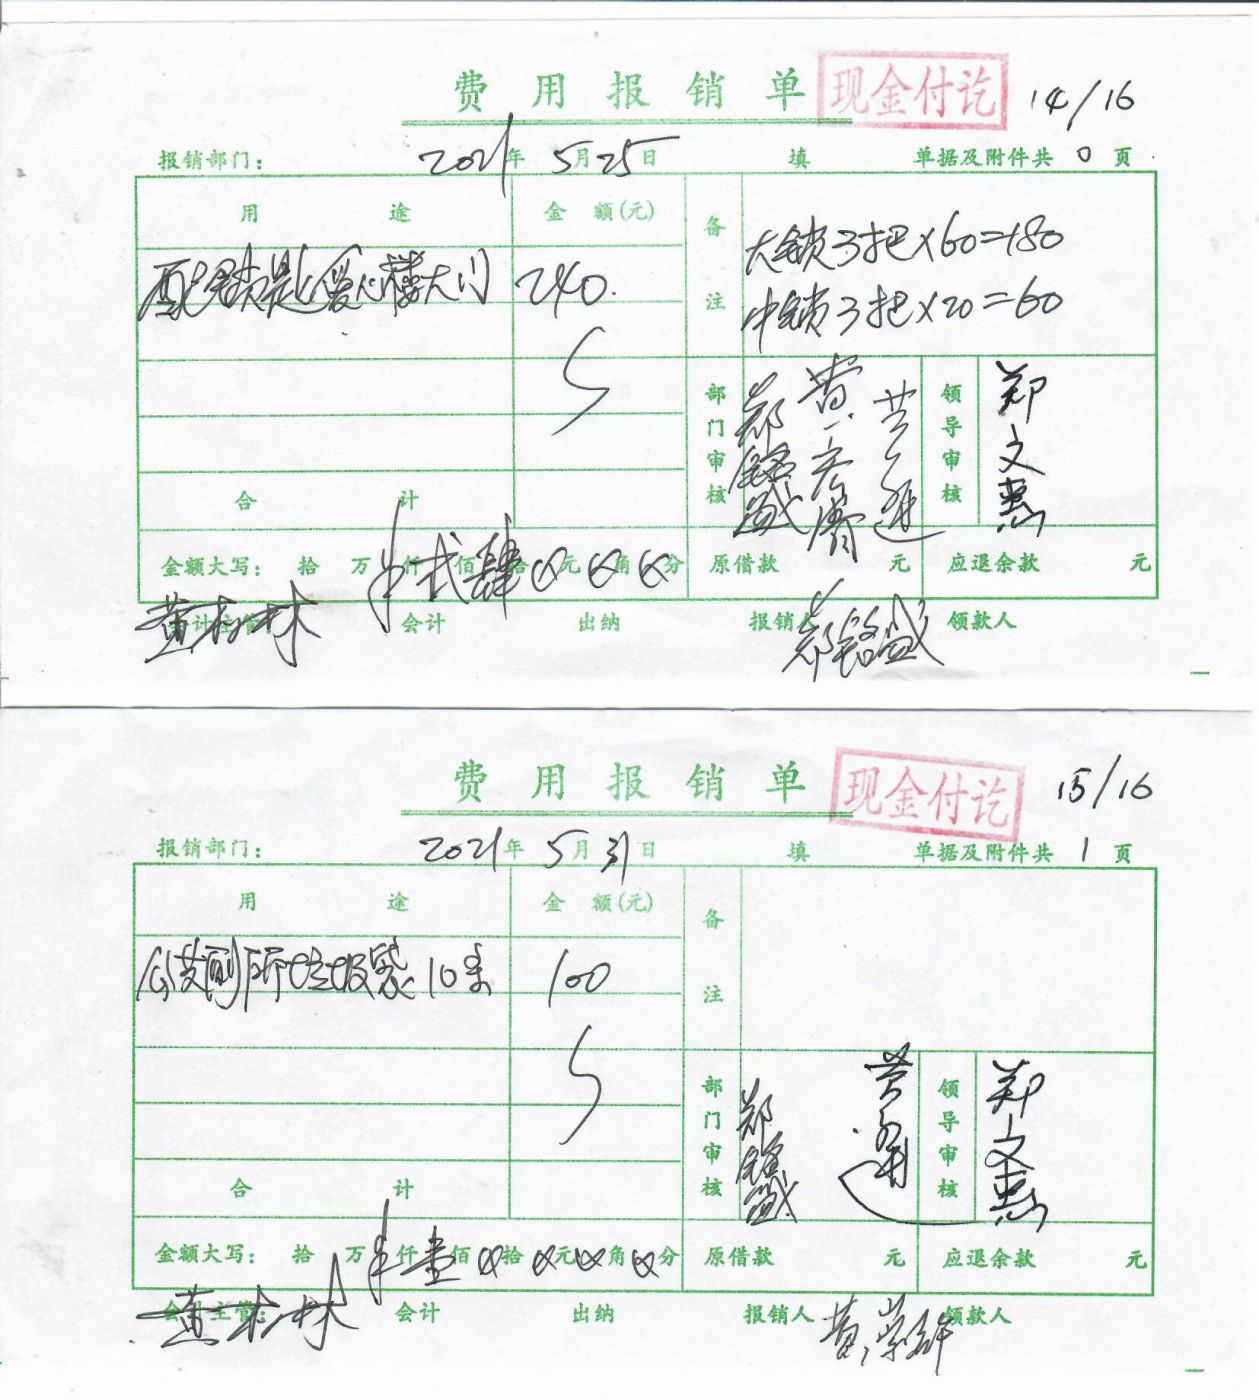 费用报销单 现金付讫 14/16
报销部门： 2021年 5月25日 填 单据及附件共 0 页
用途 金额(元) 备注
大锁3把×60=180
配锁匙爱心楼大门 240.
中锁3把×20=60
部门审核 郑铭盛 领导审核 郑文惠
合计
金额大写： 拾 万 仟 弍 佰 肆 拾 ⊗ 元 ⊗ 角 ⊗ 分 原借款 元 应退余款 元
会计主管 会计 出纳 报销人 郑铭盛 领款人
费用报销单 现金付讫 15/16
报销部门： 2021年 5月31日 填 单据及附件共 1 页
用途 金额(元) 备注
公共厕所垃圾袋10条 100
部门审核 郑铭盛 领导审核 郑文惠
合计
金额大写： 拾 万 仟 壹 佰 ⊗ 拾 ⊗ 元 ⊗ 角 ⊗ 分 原借款 元 应退余款 元
会计主管： 会计 出纳 报销人 领款人